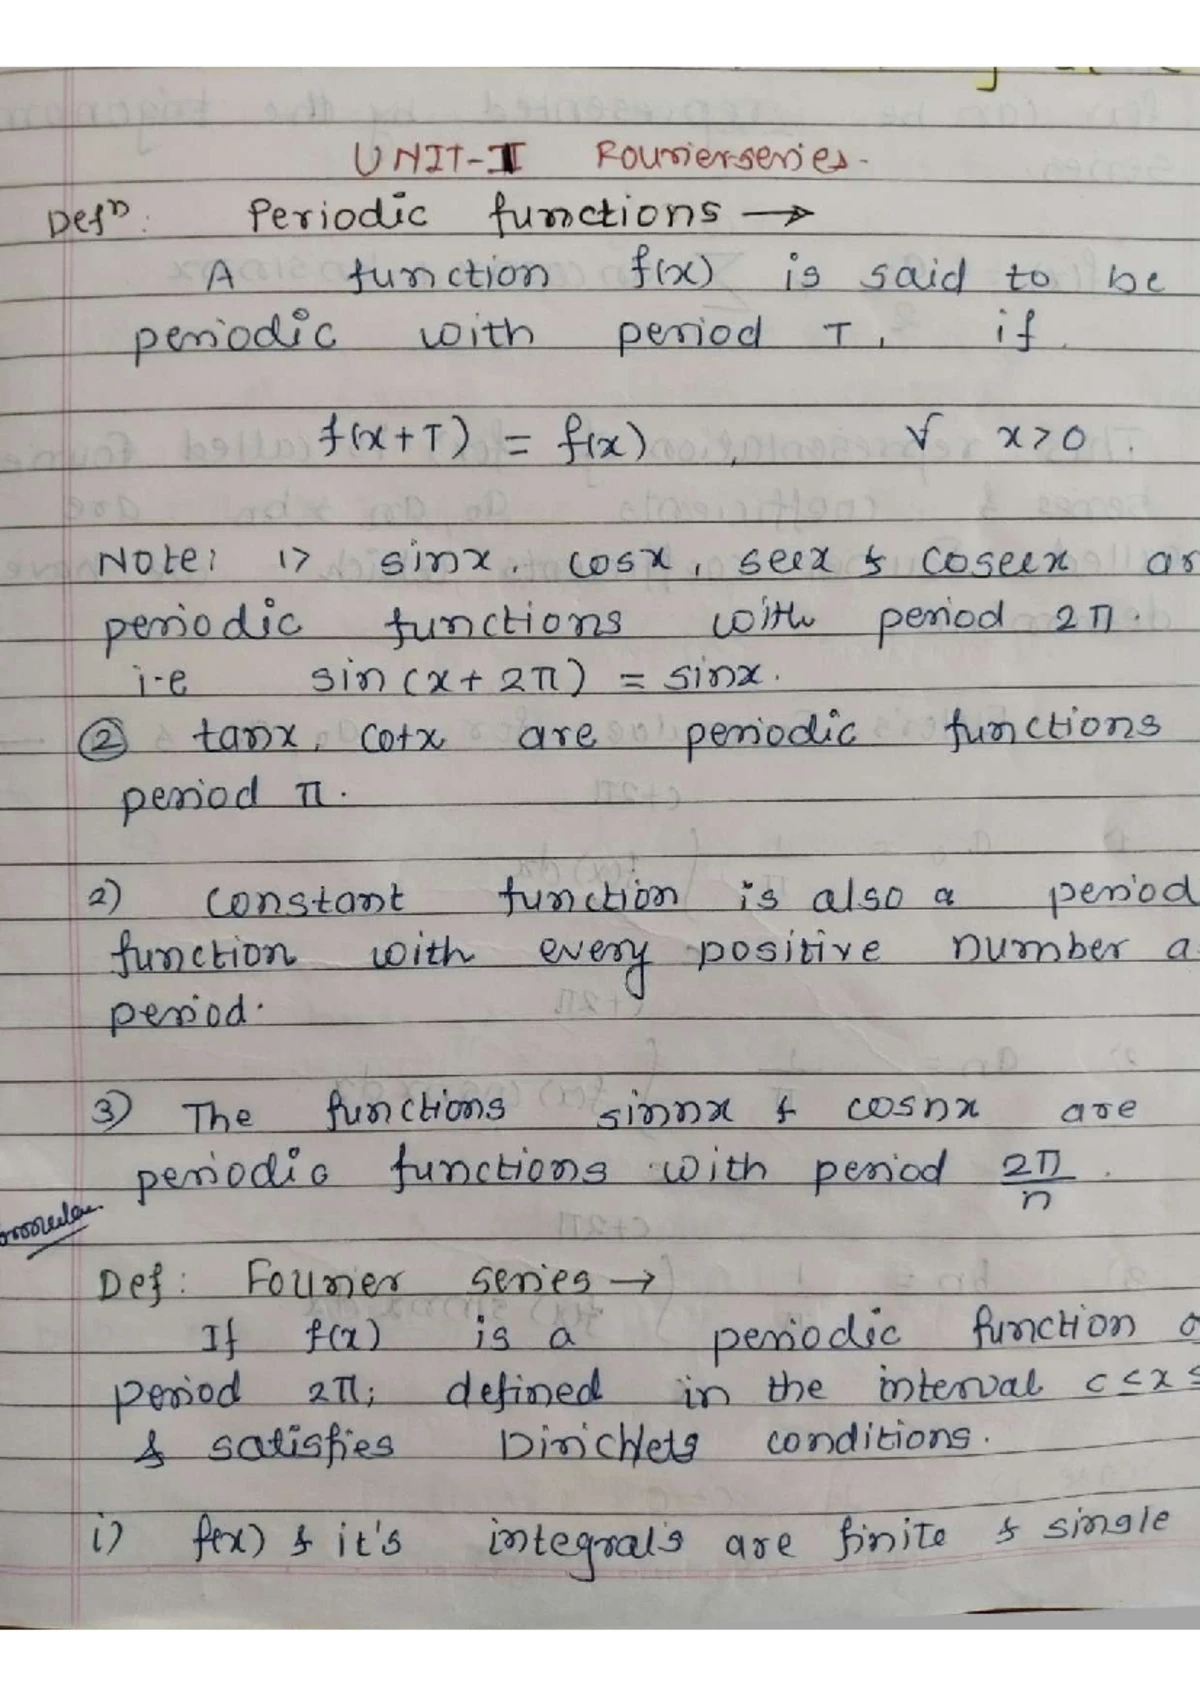 UNIT-II Fourier series.
Defⁿ: Periodic functions →
A function f(x) is said to be
periodic with period T, if
f(x+T) = f(x), ∀ x>0.
Note: 1> sinx, cosx, secx & cosecx ar
periodic functions with period 2π.
i-e sin(x+2π) = sinx.
② tanx, cotx are periodic functions
period π.
2) constant function is also a period
function with every positive number a
period.
3) The functions sinnx & cosnx are
periodic functions with period 2π/n.
Def: Fourier series →
If f(x) is a periodic function o
period 2π; defined in the interval c≤x≤
& satisfies Dirichlets conditions.
i) f(x) & it's integrals are finite & single